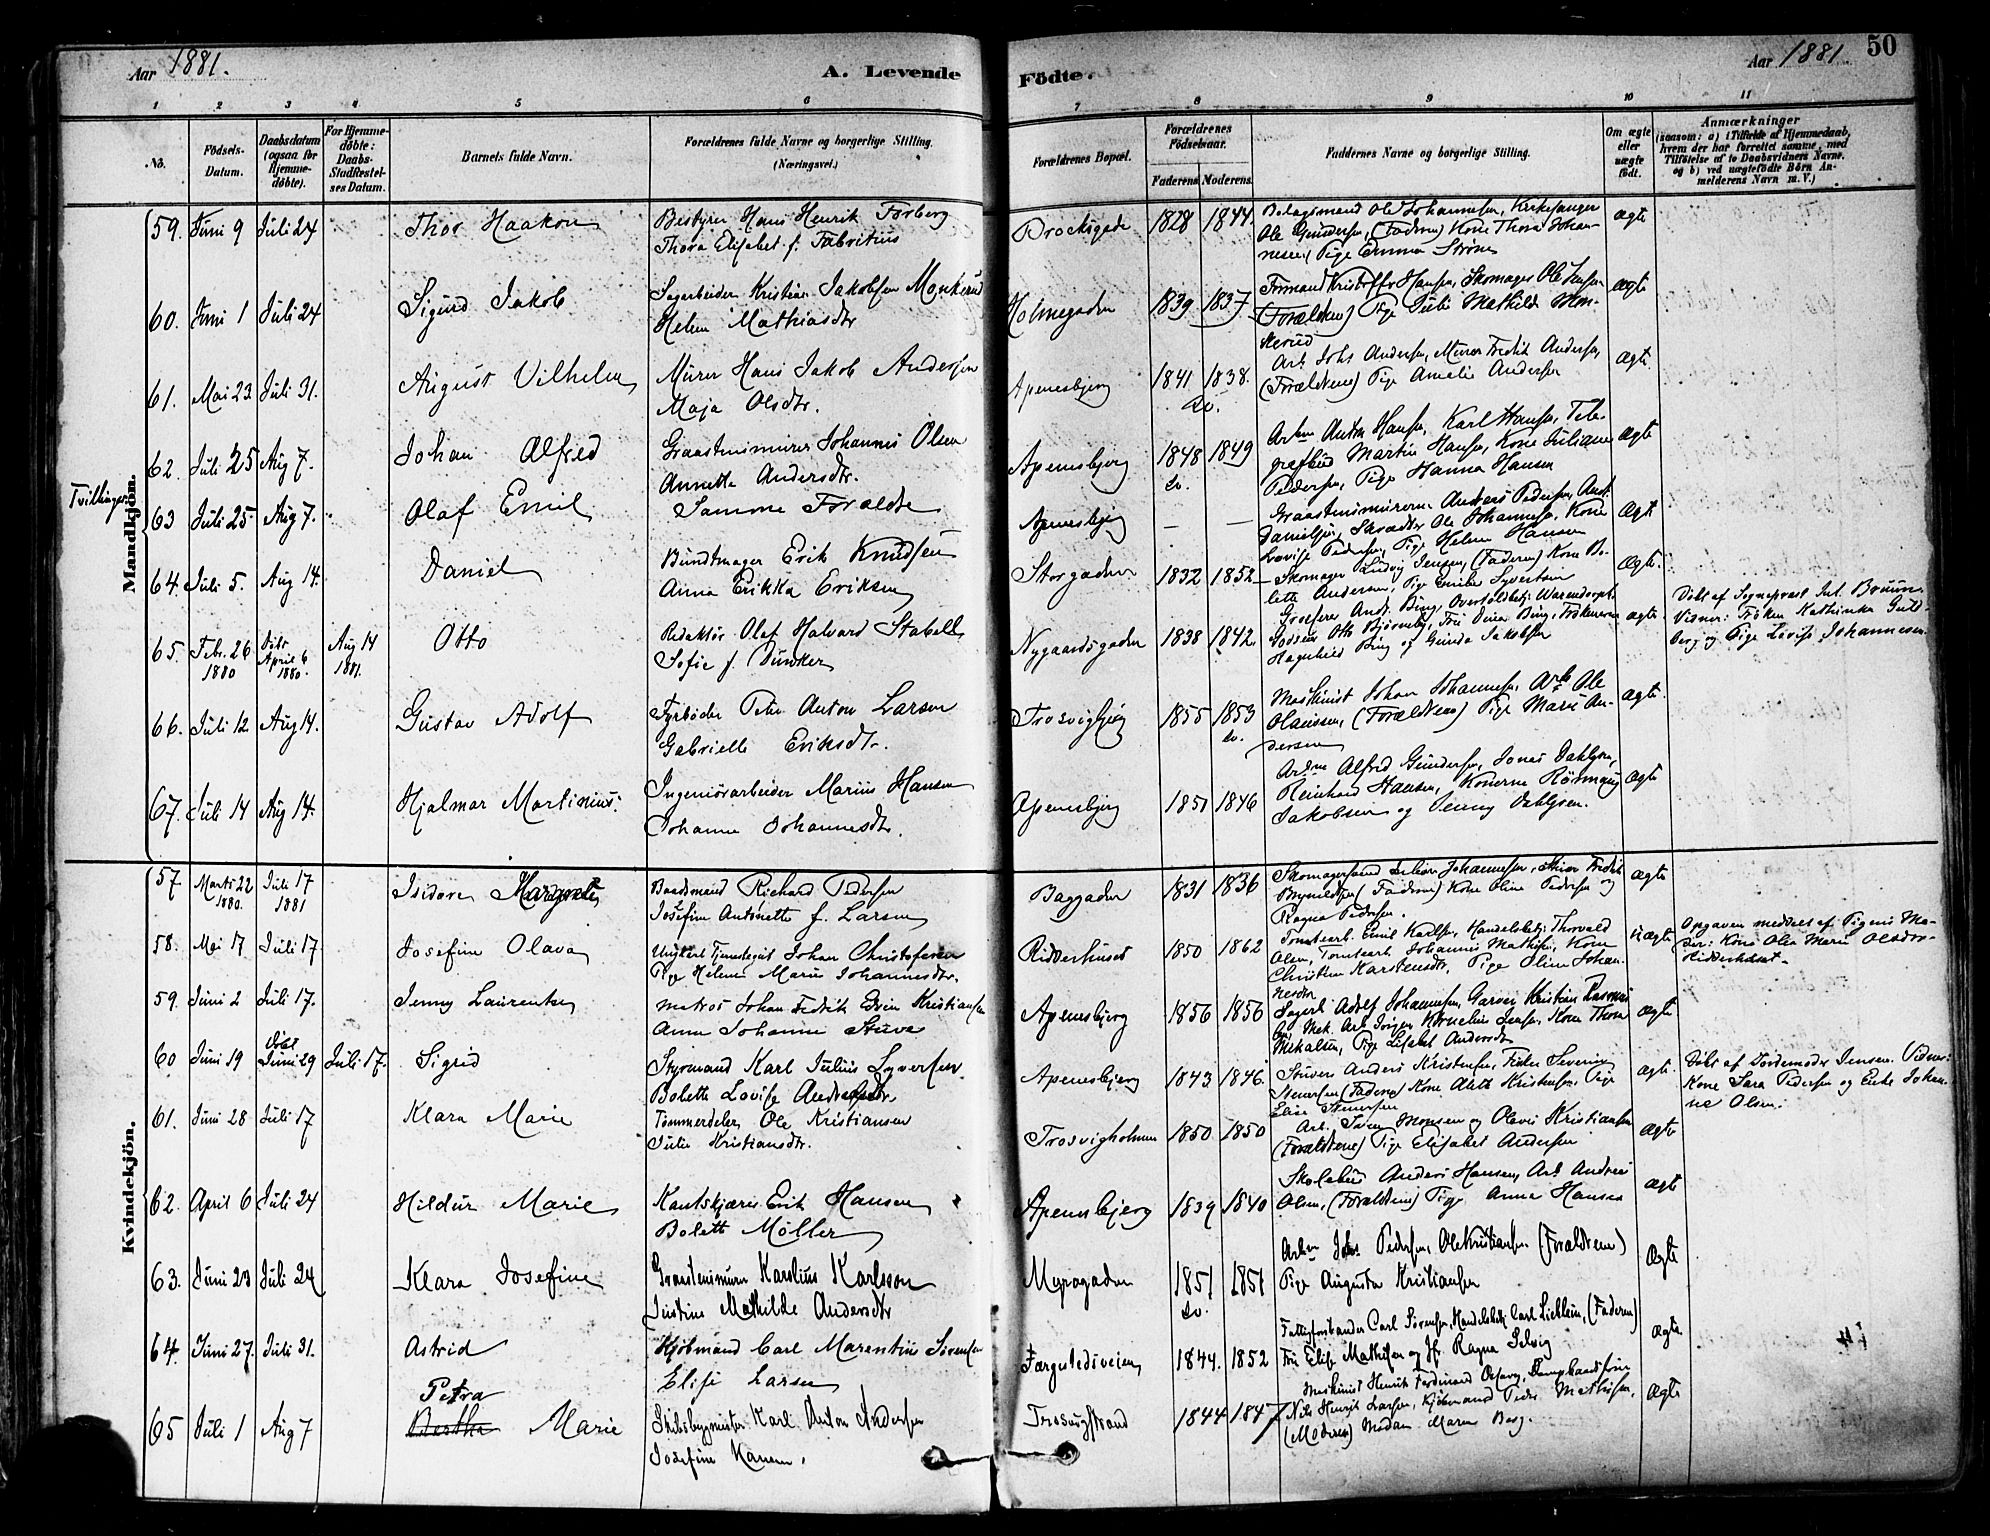 Aar 1881.
A. Levende
Födte.
Aar 1881
50
1 2 3 4 5 6 7 8 9 10 11
No.
Födsels-Datum.
Daabsdatum (ogsaa for Hjemmedöbte).
For Hjemmedöbte: Daabs-Stadfæstelses Datum.
Barnets fulde Navn.
Forældrenes fulde Navne og borgerlige Stilling. (Næringsvei.)
Forældrenes Bopæl.
Forældrenes Födselsaar.
Faderens. Moderens.
Faddernes Navne og borgerlige Stilling.
Om ægte eller uægte födt.
Anmærkninger
(saasom: a) i Tilfælde af Hjemmedaab, hvem der har forrettet samme, med Tilföielse af to Daabsvidners Navne. og b) ved uægtefödte Börn Anmelderens Navn m. V.)
Mandkjön.
59. Juni 9 Juli 24 Thor Haakon
Bestyrer Hans Henrik Forberg
Thora Elisabet f. Fabritius
Brocksgade 1828 1844
Ole Gundersen, (Faderen) Kone Thora Johan-
nesen, Pige Emma Strøm
ægte
60. Juni 1 Juli 24 Sigurd Jakob
Sagarbeider Kristian Jakobsen Monkerud
Helene Mathiasdtr
Holmegaden 1839 1837
Formand Kristoffer Hansen, Skomager Ole Jensen
(Forældrene) Pige Juli Mathilde Mon-
kerud
ægte
61. Mai 23 Juli 31. August Vilhelm
Murer Hans Jakob Andersen
Maja Olsdtr.
Apenesbjerg 1841 1838.
Arb. Johs Andersen, Murer Fredrik Andersen,
(Forældrene) Pige Amelie Andersen
ægte
62 Juli 25 Aug 7. Johan Alfred
Graastensmurer Johannes Olsen
Annette Andersdtr.
Apenesbjerg 1848 1849
Anton Hansen, Karl Hansen, Tele-
grafbud Martin Hansen, Kone Juliane
Pedersen, Pige Hanna Hansen
ægte
Tvillinger
63 Juli 25 Aug 7. Olaf Emil
Samme Forældre
Apenesbjerg — —
Graastensmurerne Anders Pedersen, And.
Danielsen, Skrædder Ole Johannesen, Kone
Lovise Pedersen, Pige Helene Hansen
ægte
64. Juli 5. Aug 14. Daniel
Bundtmager Erik Knudsen
Anna Erikka Eriksen
Storgaden 1832 1852
Skomager Ludvig Jensen, (Faderen) Kone Bo-
lette Andersen, Pige Emilie Syvertsen
ægte.
65. Febr. 26 1880 Døbt April 6 1880. Aug 14 1881. Otto
Redaktør Olaf Halvard Stabell
Sofie f. Dunker
Nygaardsgaden 1838 1842.
Grosserer And. Bing,
Ragnhild Bing og Gunda Jakobsen
ægte
Døbt af Sogneprest Jul. Bruun.
Vidner: Frøken Kathinka Guld-
berg og Pige Lovise Johannesen
66. Juli 12 Aug 14. Gustav Adolf
Fyrbøder Peter Anton Larsen
Gabrielle Eriksdtr.
Trosvigbjerg 1855 1853
Maskinist Johan Johannesen, Arb. Ole
Olaussen, (Forældrene) Pige Marie An-
dersen
ægte
67. Juli 14 Aug 14. Hjalmar Martinius
Ingeniørarbeider Marius Hansen
Johanne Johannesdtr.
Apenesbjerg 1851 1846
Alfred Gundersen, Jonas Dahlgren,
Reinhard Hansen, Konerne
Jakobsen og Jenny Dahlgren.
ægte
Kvindekjön.
57 Marts 22 1880. Juli 17 1881 Isidore Margrete
Baadsmand Richard Pedersen
Josefine Antonette f. Larsen
Baggaden 1831 1836
Brynildsen, (Faderen) Kone Oline Pedersen og
Ragna Pedersen.
ægte
58. Mai 17 Juli 17. Josefine Olava
Ungkarl Tjenestegut Johan Christofersen
Pige Helene Marie Johannesdtr.
Ridderhuset 1850 1862
Tomtearb. Emil Karlsen, Handelsbetj. Thorvald
Olsen, Tomtearb. Johannes Mathisen, Kone
Christine Karstensdtr, Pige Oline Johan-
nesdtr
uægte
Opgaven meddelt af Pigens Mo-
der: Kone Olea Marie Olsdtr.
Ridderhuset.
59. Juni 2 Juli 17. Jenny Laurentse
Matros Johan Fredrik Edvin Kristiansen
Anna Johanne Stuve
Apenesbjerg 1856 1856
Adolf Johannesen, Garver Kristian Rasmus-
sen, Mek. Arb. Jørgen Kornelius Jensen, Kone Thora
Mikalsen, Pige Lisabet Andersdtr
ægte
60 Juni 19 Døbt Juni 29 Juli 17. Sigrid
Styrmand Karl Julius Syversen
Bolette Lovise Andreasdtr
Apenesbjerg 1843 1846.
Anders Kristensen, Fisker Severin
Stenersen (Faderen) Kone Alette Kristensen, Pige
Elise Stenersen
ægte.
Døbt af Jordemoder Jensen. Vidner:
Kone Sara Pedersen og Enke Johan-
ne Olsen.
61. Juni 28 Juli 17 Klara Marie
Tømmerdeler Ole Kristiansen
Julie Kristiansdtr.
Trosvigholmen 1850 1850
Arb. Sven Monsen og Olevis Kristiansen
(Forældrene) Pige Elisabet Andersen
ægte
62. April 6 Juli 24 Hildur Marie
Kantskjærer Erik Hansen
Bolett Møller
Apenesbjerg 1839 1840
Skolebud Anders Hansen, Arb. Andreas
Olsen, (Forældrene) Pige Anna Hansen
ægte
63. Juni 23 Juli 24 Klara Josefine
Graastensmurer Karolius Karlsson
Justine Mathilde Andersdtr
Myragaden 1851 1851
Johs. Pedersen, Ole Kristiansen (Forældrene)
Pige Augusta Kristiansen
ægte
64. Juni 27. Juli 31. Astrid
Kjøbmand Carl Marentius Sørensen
Elise Larsen
Færgestedsveien 1844. 1852
Fattigforstander Carl Sørensen, Handelsbetj. Carl Lieblein, (Faderen)
Fru Elise Mathisen og Jf. Ragna Selvig
ægte.
65 Juli 1 Aug 7 Petra Bertha Marie
Skibsbygmester Karl Anton Andersen
Josefine Karene.
Trosvigstrand 1844 1847
Maskinist Henrik Ferdinand
Nils Henrik Larsen, Kjøbmand Peder Mathisen,
(Moderen) Madam Maren Berg.
ægte